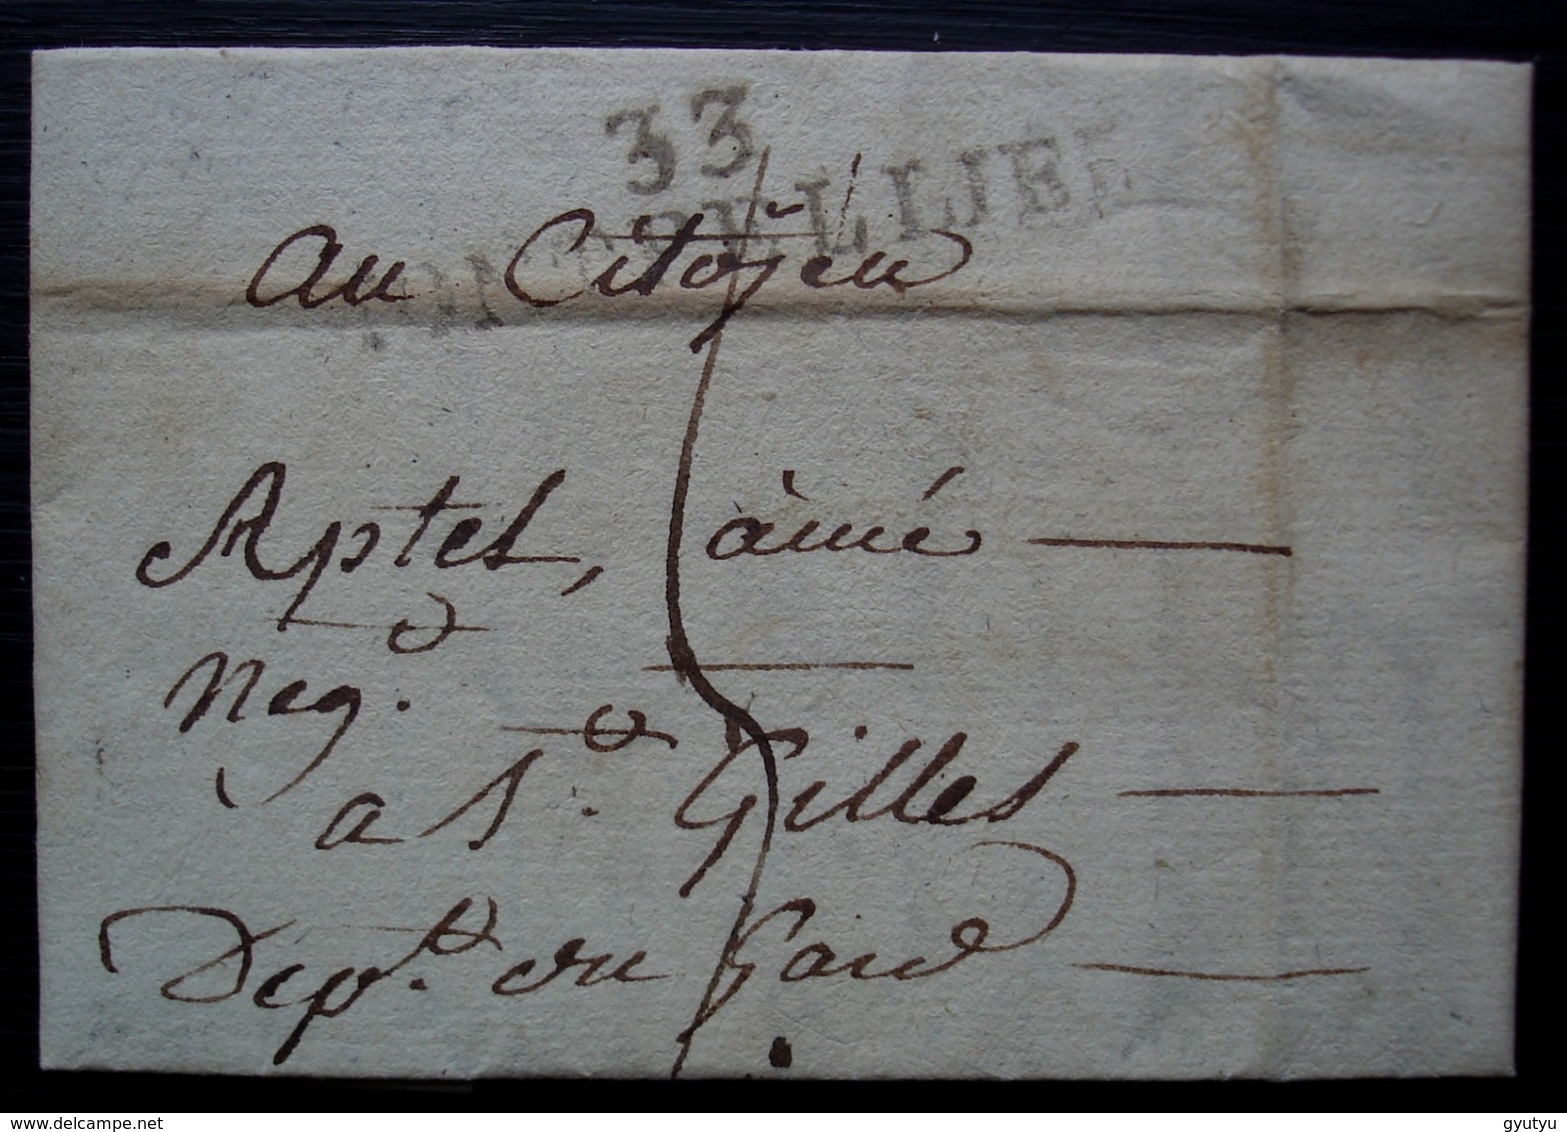 33
MONTPELLIER
Au Citoyen
Aptel, àiné
Neg.t
a St. Gilles
Dept. du Gard
delcampe.net
gyutyu